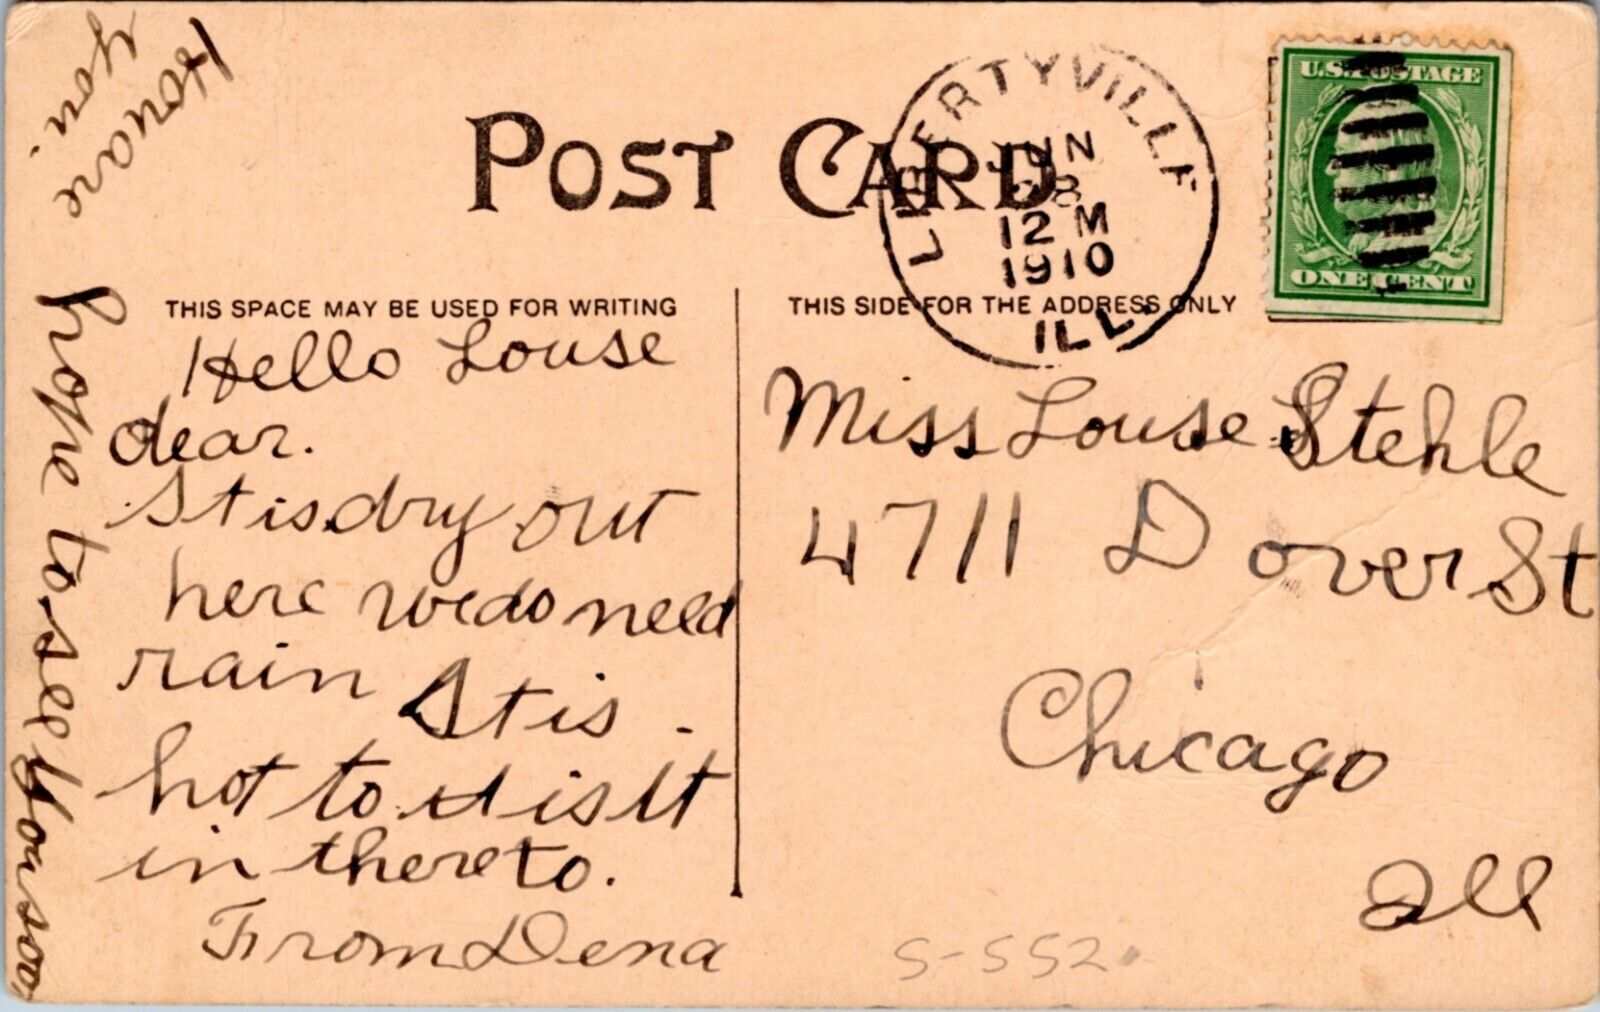 How are
you.
POST CARD
LIBERTYVILLE
JUN
28
12 M
1910
ILL.
U.S. POSTAGE
ONE CENT
THIS SPACE MAY BE USED FOR WRITING
THIS SIDE FOR THE ADDRESS ONLY
Hello Louse
dear.
It is dry out
here we do need
rain It is
hot to is It
in there to.
From Dena
hope to see you soon
Miss Louse Stehle
4711 Dover St
Chicago
Ill
S-552